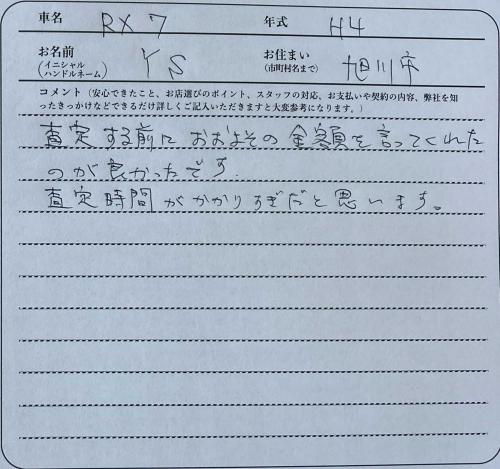 車名 RX7 年式 H4
お名前 (イニシャル ハンドルネーム) YS お住まい (市町村名まで) 旭川市
コメント（安心できたこと、お店選びのポイント、スタッフの対応、お支払いや契約の内容、弊社を知
ったきっかけなどできるだけ詳しくご記入いただきますと大変参考になります。）
査定する前におおよその金額を言ってくれた
のが良かったです.
査定時間がかかりすぎだと思います。